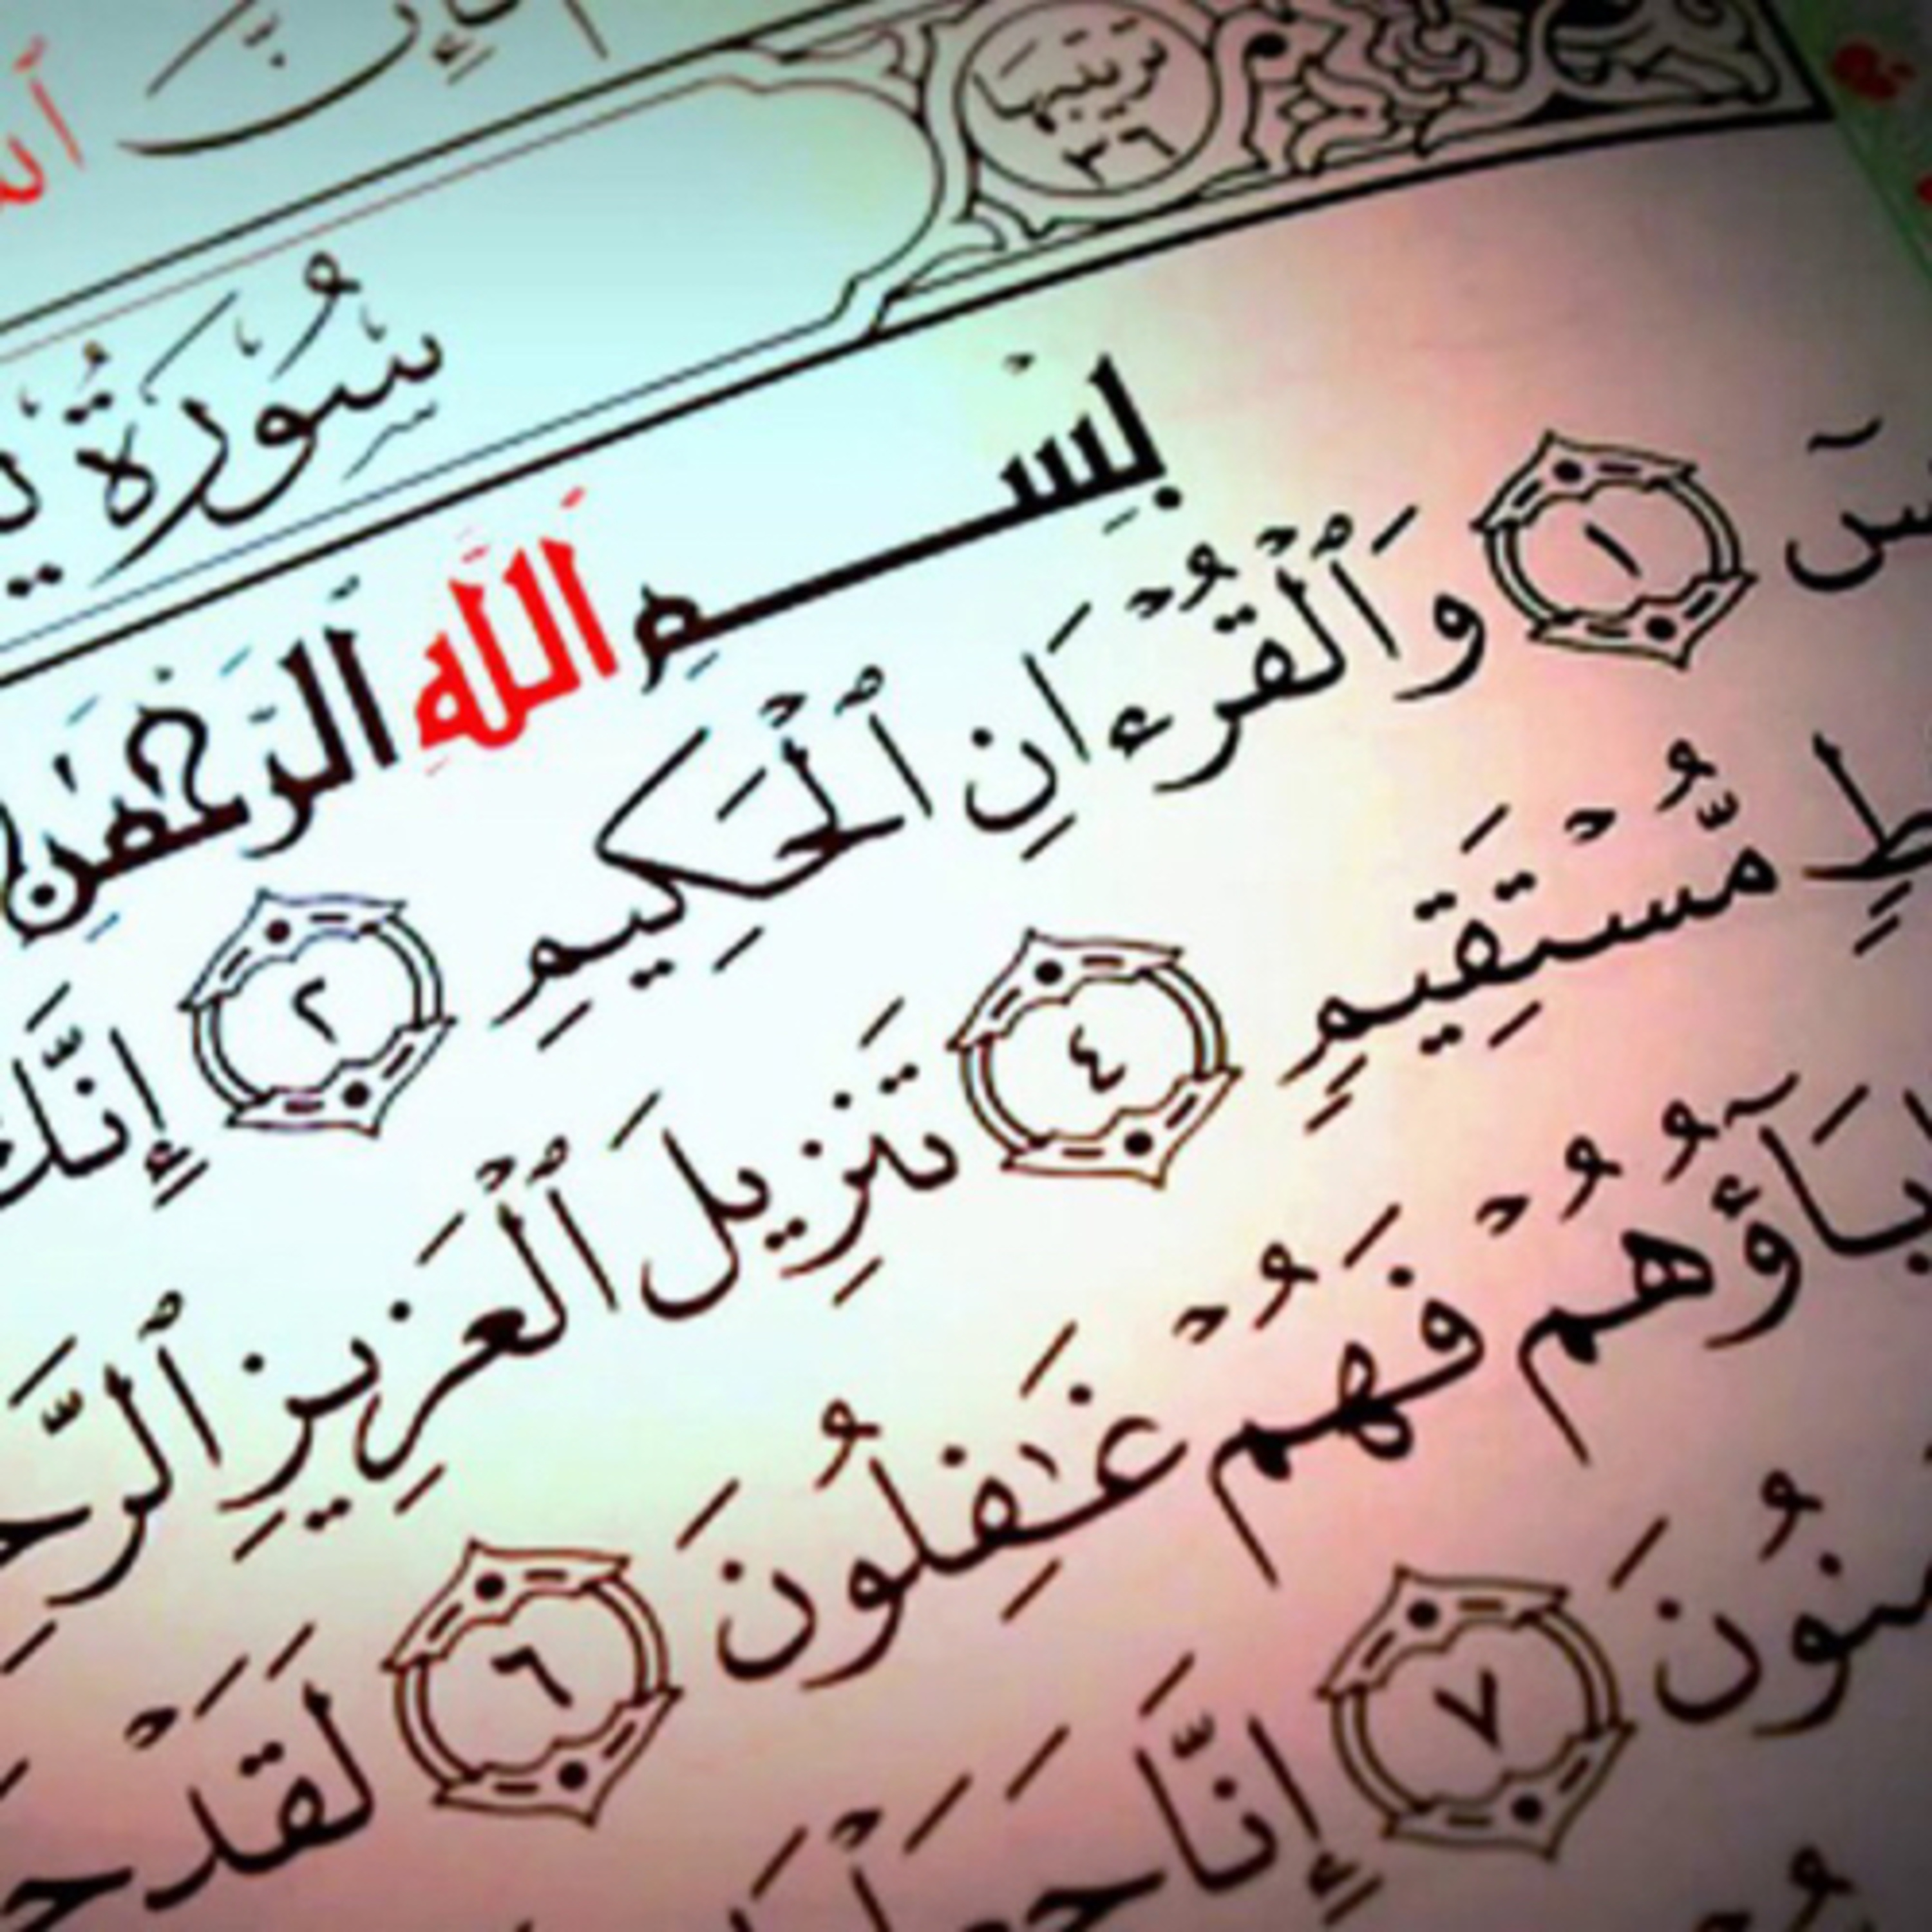 ترتيبها
٣٦
سُورَةُ
بِسْمِ ٱللَّهِ ٱلرَّحْمَٰنِ
سٓ ١ وَٱلْقُرْءَانِ ٱلْحَكِيمِ ٢ إِنَّكَ
طٍ مُّسْتَقِيمٍ ٤ تَنزِيلَ ٱلْعَزِيزِ ٱلرَّح
ءَابَآؤُهُمْ فَهُمْ غَٰفِلُونَ ٦ لَقَدْ ح
مِنُونَ ٧ إِنَّا جَعَلْ